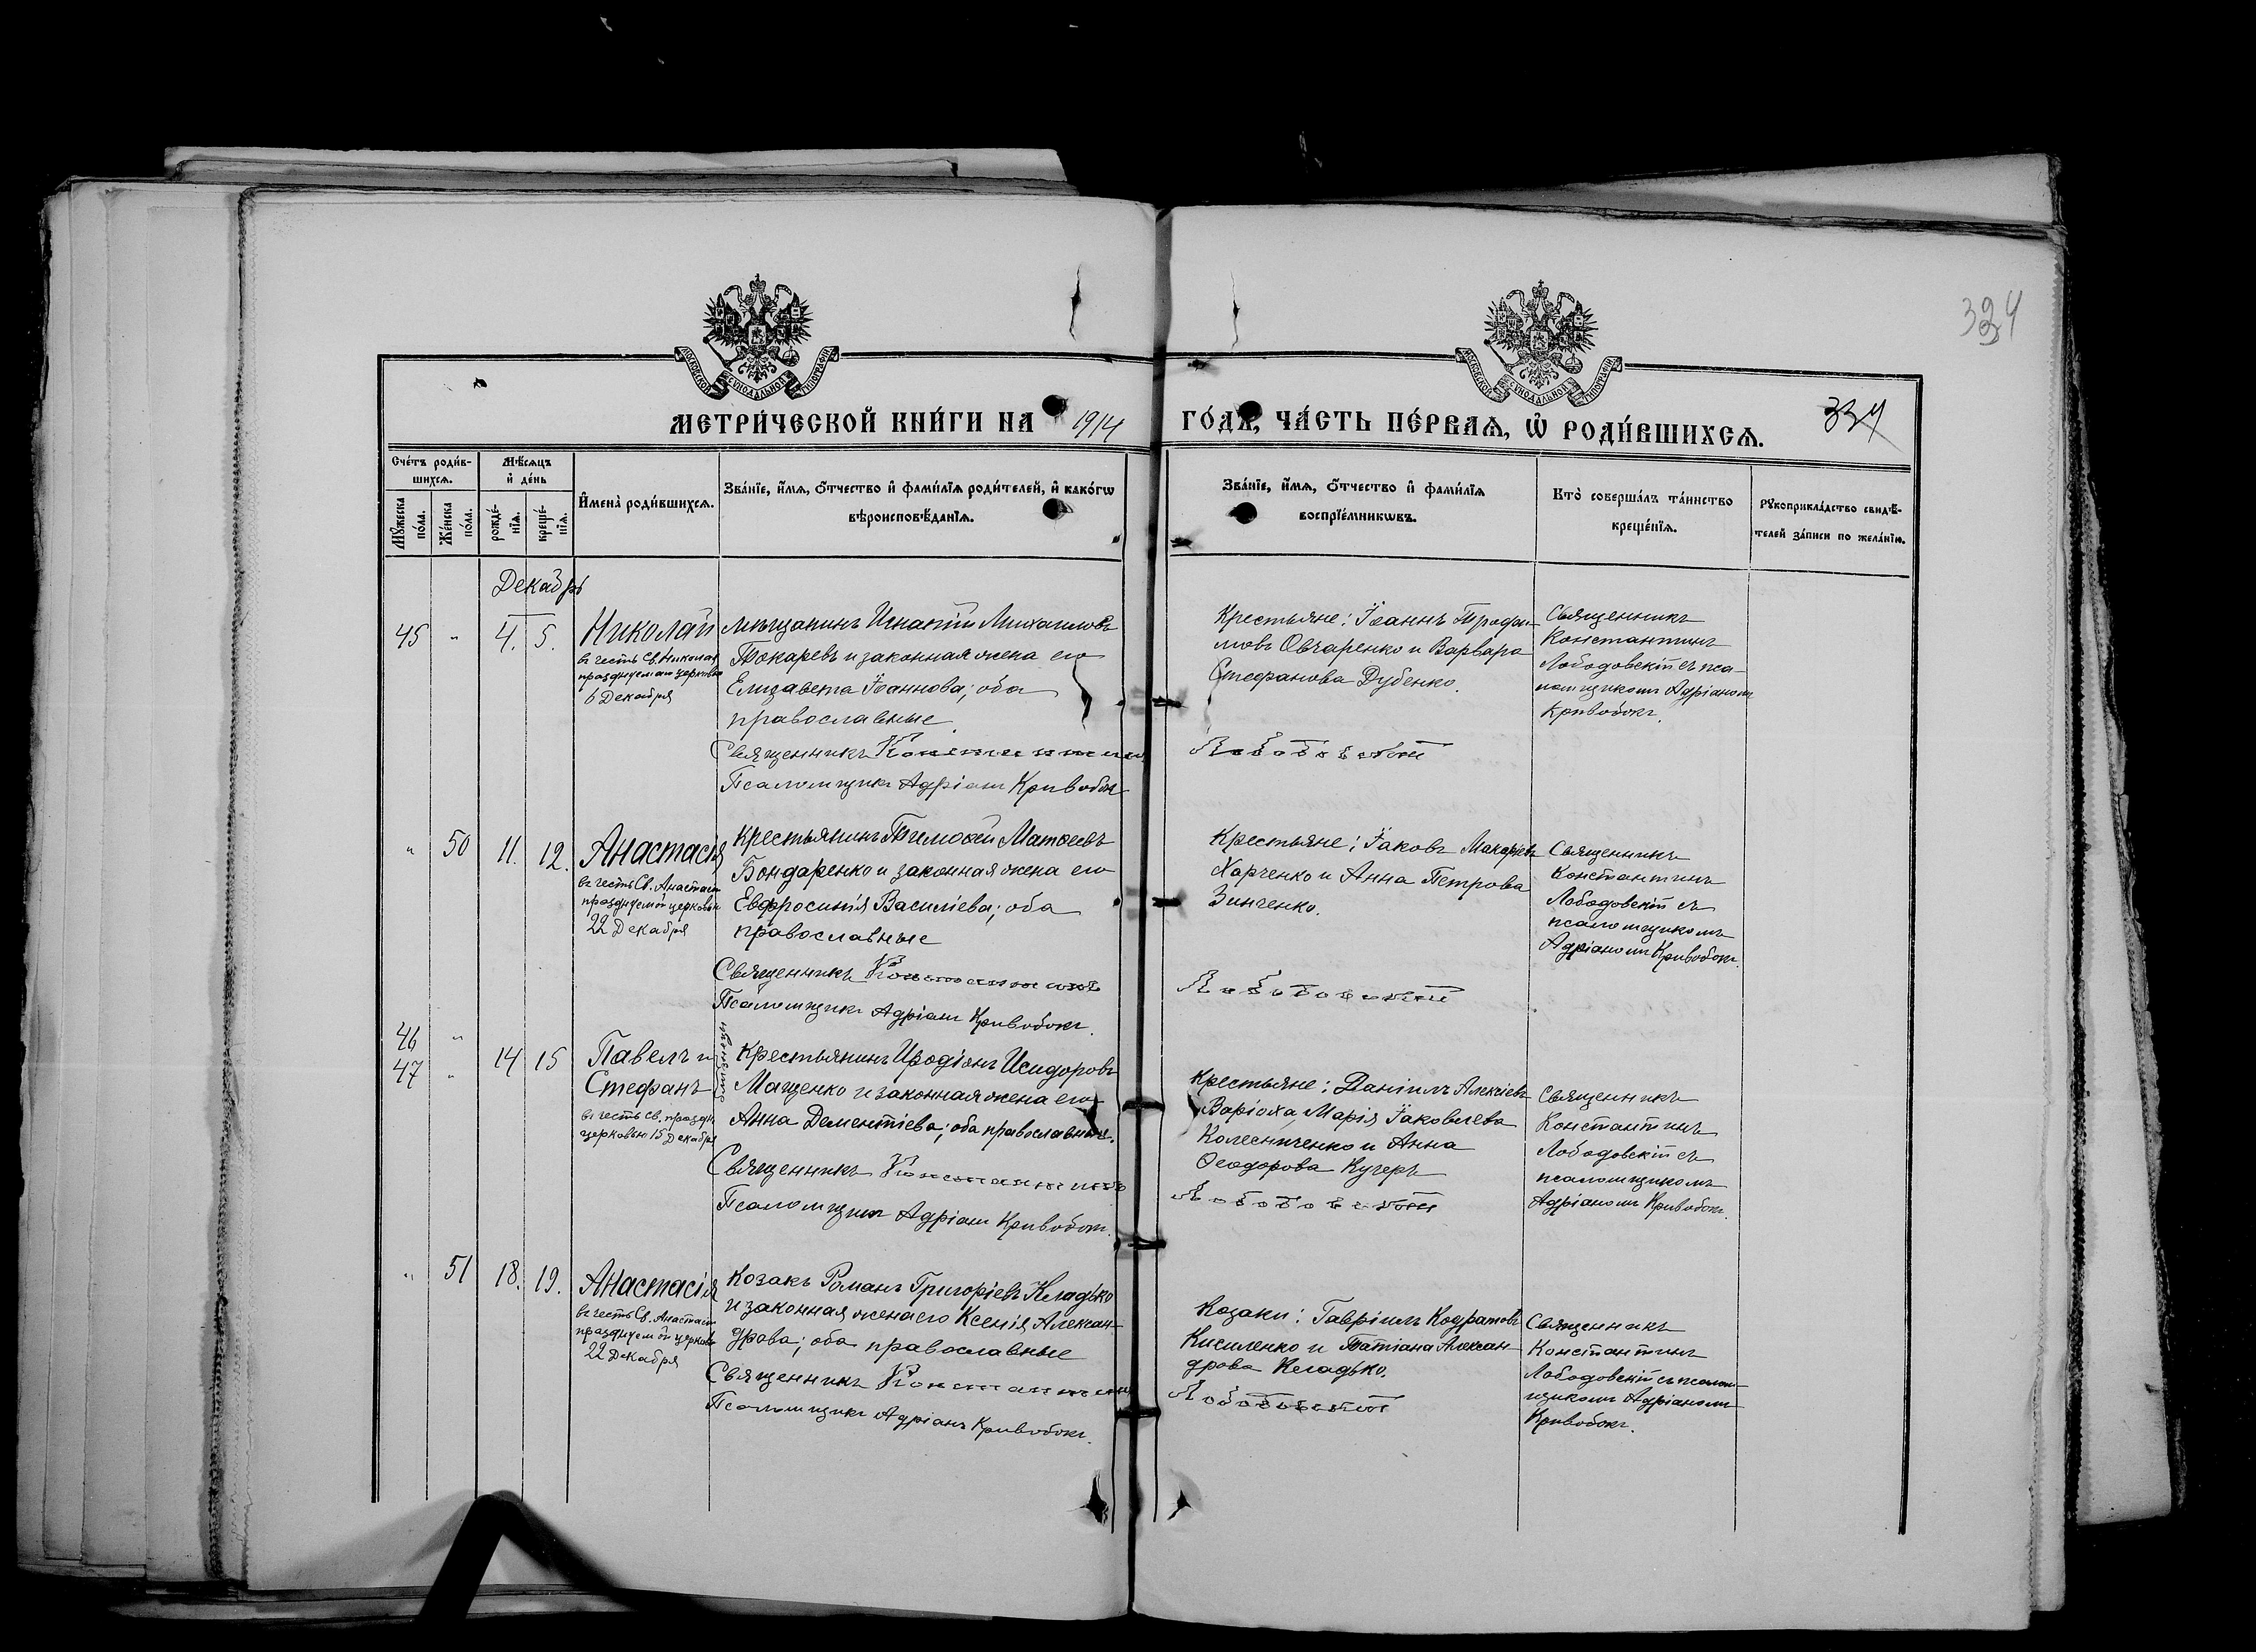 324
МОСКОВСКОЙ СѴНОДАЛЬНОЙ ТИПОГРАФІИ
МОСКОВСКОЙ СѴНОДАЛЬНОЙ ТИПОГРАФІИ
МЕТРИ́ЧЕСКОЙ КНИ́ГИ НА 1914 ГО́ДЪ, ЧА́СТЬ ПЕ́РВАѦ, Ѽ РОДИ́ВШИХСѦ.
334
Сче́тъ роди́в-
шихсѧ.
Мѣ́сѧцъ
и҆ де́нь
Мꙋ́жеска
по́ла.
Же́нска
по́ла.
рожде́-
нїѧ.
креще́-
нїѧ.
И҆мена̀ роди́вшихсѧ.
Зва́нїе, и҆́мѧ, ѻ҆́тчество и҆ фами́лїѧ роди́телей, и҆ како́гѡ
вѣроисповѣ́данїѧ.
Зва́нїе, и҆́мѧ, ѻ҆́тчество и҆ фами́лїѧ
воспрїе́мникѡвъ.
Кто̀ соверша́лъ та́инство
креще́нїѧ.
Рꙋкоприкла́дство свидѣ́-
телей за́писи по жела́нїю.
Декабрь
45 " 4. 5.
Николай
въ честь Св. Николая
6 Декабря
мѣщанинъ Игнатій Михаиловъ
Токаревъ и законная жена его
Елизавета Іоаннова; оба
православные.
Священникъ Константинъ
Псаломщикъ Адріанъ Кривобокъ
Крестьяне: Іоаннъ Трофи-
мовъ Овчаренко и Варвара
Стефанова Дубенко.
Лободовскій
Священникъ
Константинъ
Лободовскій съ пса-
ломщикомъ Адріаномъ
Кривобокъ.
" 50 11. 12.
Анастасія
въ честь Св. Анастасіи
празднуемой церковью
22 Декабря
Крестьянинъ Тимоѳей Матѳеевъ
Бондаренко и законная жена его
Евфросинія Василіева; оба
православные
Священникъ Константинъ
Псаломщикъ Адріанъ Кривобокъ.
Крестьяне: Іаковъ Макаріевъ
Харченко и Анна Петрова
Зинченко.
Лободовскій
Священникъ
Константинъ
Лободовскій съ
псаломщикомъ
Адріаномъ Кривобокъ.
46 "
47 " 14 15
Павелъ и
Стефанъ
въ честь Св. праздн.
церковью 15 Декабря
Крестьянинъ Иродіонъ Исидоровъ
Мащенко и законная жена его
Анна Дементіева; оба православные.
Священникъ Константинъ
Псаломщикъ Адріанъ Кривобокъ.
Крестьяне: Даніилъ Алексіевъ
Варіоха, Марія Іаковлева
Колесниченко и Анна
Ѳеодорова Кучеръ
Лободовскій
Священникъ
Константинъ
Лободовскій съ
псаломщикомъ
Адріаномъ Кривобокъ.
" 51 18. 19.
Анастасія
въ честь Св. Анастасіи
празднуемой церковью
22 Декабря
Козакъ Романъ Григоріевъ Кладько
и законная жена его Ксенія Алексан-
дрова; оба православные
Священникъ Константинъ
Псаломщикъ Адріанъ Кривобокъ.
Козаки: Гавріилъ Кодратовъ
Кисиленко и Татіана Алексан-
дрова Кладько.
Лободовскій
Священникъ
Константинъ
Лободовскій съ псалом-
щикомъ Адріаномъ
Кривобокъ.